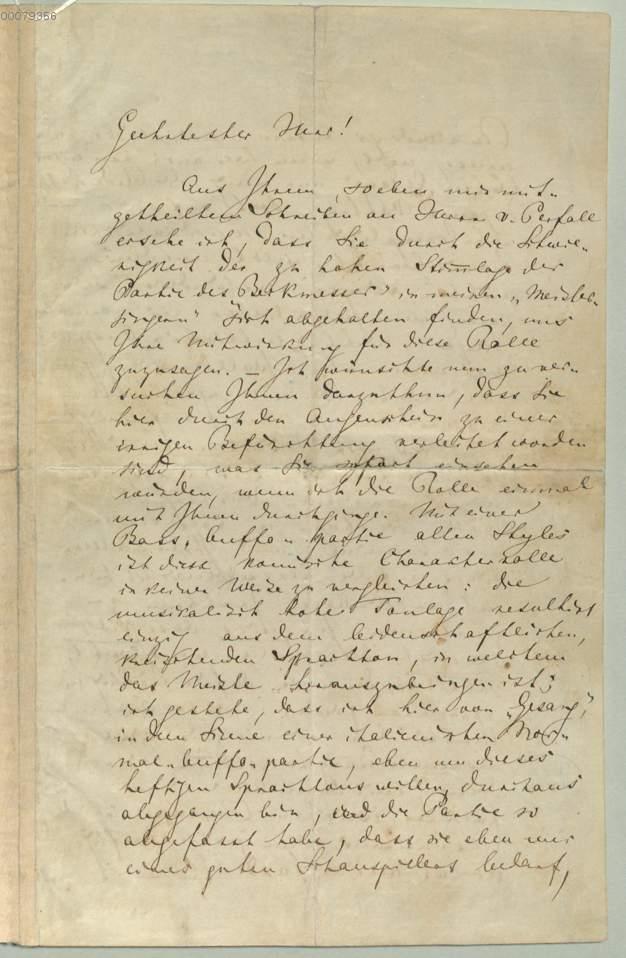 00079356
Geehrtester Herr!
Aus Ihrem, soeben mir mit-
getheiltem Schreiben an Herrn v. Perfall
ersehe ich, dass Sie durch die Schwie-
rigkeit der zu hohen Stimmlage der
Partie des „Beckmesser" in meinen „Meister-
singern" sich abgehalten finden, uns
Ihre Mitwirkung für diese Rolle
zuzusagen. – Ich wünschte nun zu ver-
suchen Ihnen darzuthun, dass Sie
hier durch den Augenschein zu einer
irrigen Befürchtung verleitet worden
sind, was Sie sofort einsehen
würden, wenn ich die Rolle einmal
mit Ihnen durchginge. Mit einer
Bass-buffo-partie alten Styles
ist diese komische Charakterrolle
in keiner Weise zu vergleichen: die
musikalisch hohe Tonlage resultirt
einzig aus dem leidenschaftlichen,
kreischenden Sprachton, in welchem
das Meiste herauszubringen ist;
ich gestehe, dass ich hier von „Gesang",
in dem Sinne einer italienischen Nor-
mal-buffo-partie, eben um dieses
heftigen Sprachtons willen, durchaus
abgegangen bin, und die Partie so
aufgefasst habe, dass sie eben nur
eines guten Schauspielers bedarf,